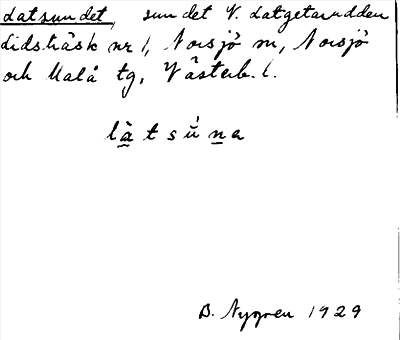 Latsundet, sundet V. Latgetarudden
Lidsträsk nr 1, Norsjö sn, Norsjö
och Malå tg, Västerb. l.
là̲ t s ú̆ n̲ a
D. Nygren 1929